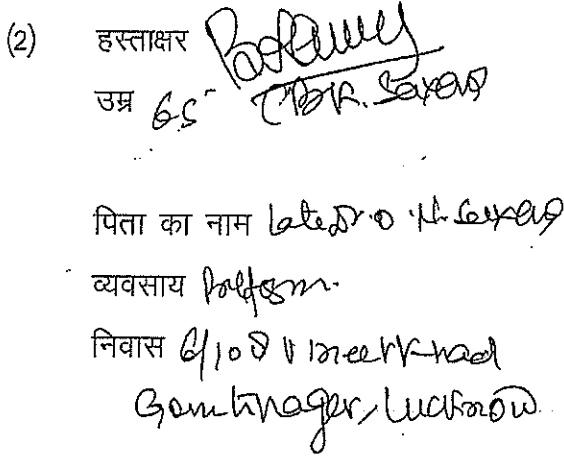 (2) हस्ताक्षर
उम्र 65 (B.K. Saxena)
पिता का नाम Late Dr. O. N. Saxena
व्यवसाय Professor.
निवास 6/108 Vineet Khand
Gomtinagar, Lucknow.